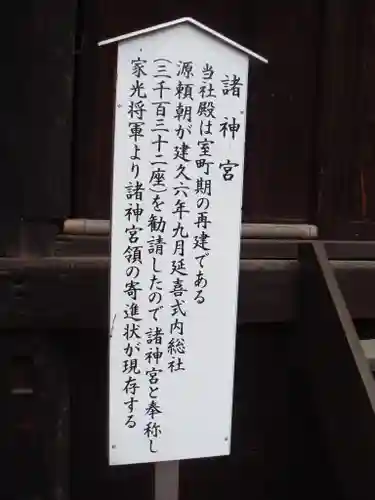 諸神宮
当社殿は室町期の再建である
源頼朝が建久六年九月延喜式内総社
(三千百三十二座)を勧請したので諸神宮と奉称し
家光将軍より諸神宮領の寄進状が現存する